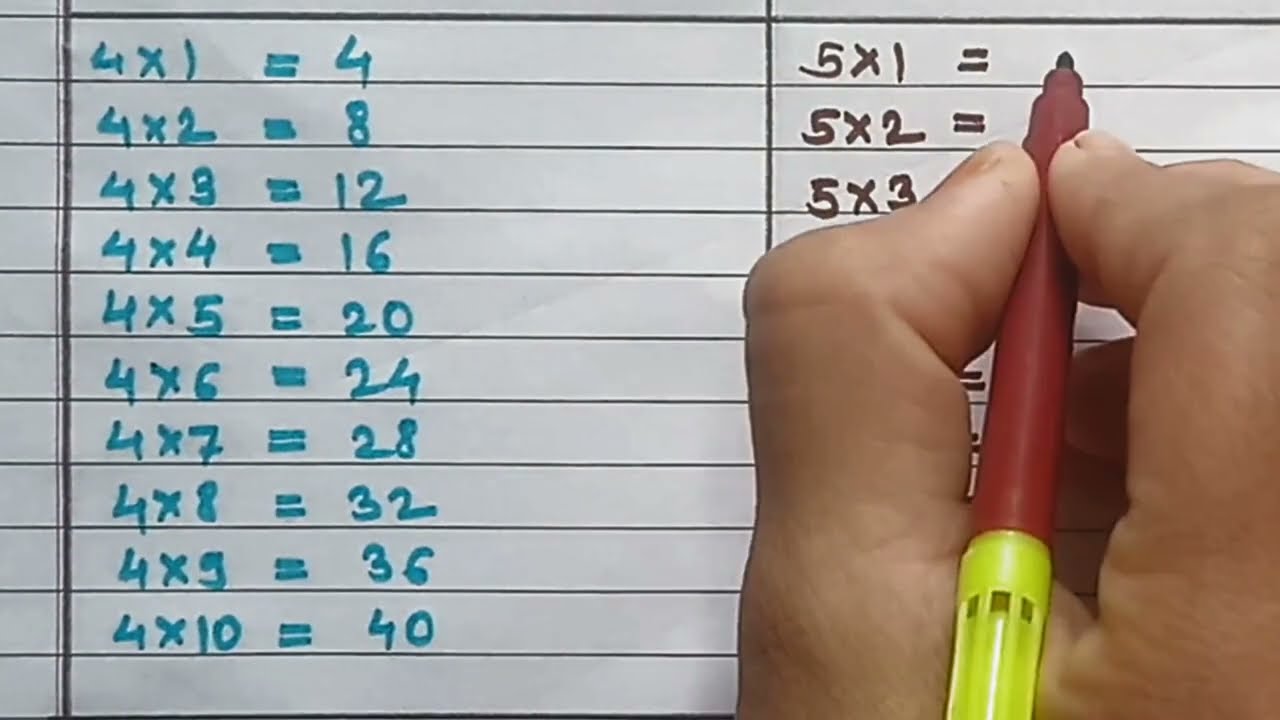 4×1 = 4
4×2 = 8
4×3 = 12
4×4 = 16
4×5 = 20
4×6 = 24
4×7 = 28
4×8 = 32
4×9 = 36
4×10 = 40
5×1 =
5×2 =
5×3
=
=